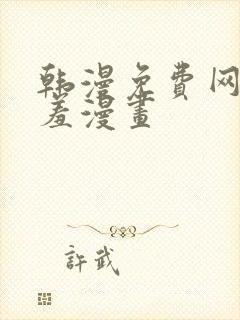 韩漫免费网
羞漫畫
許武